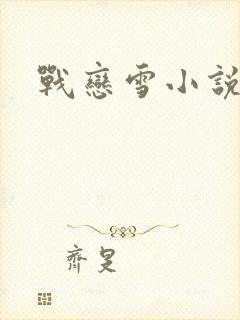 戰戀雪小說
齊是